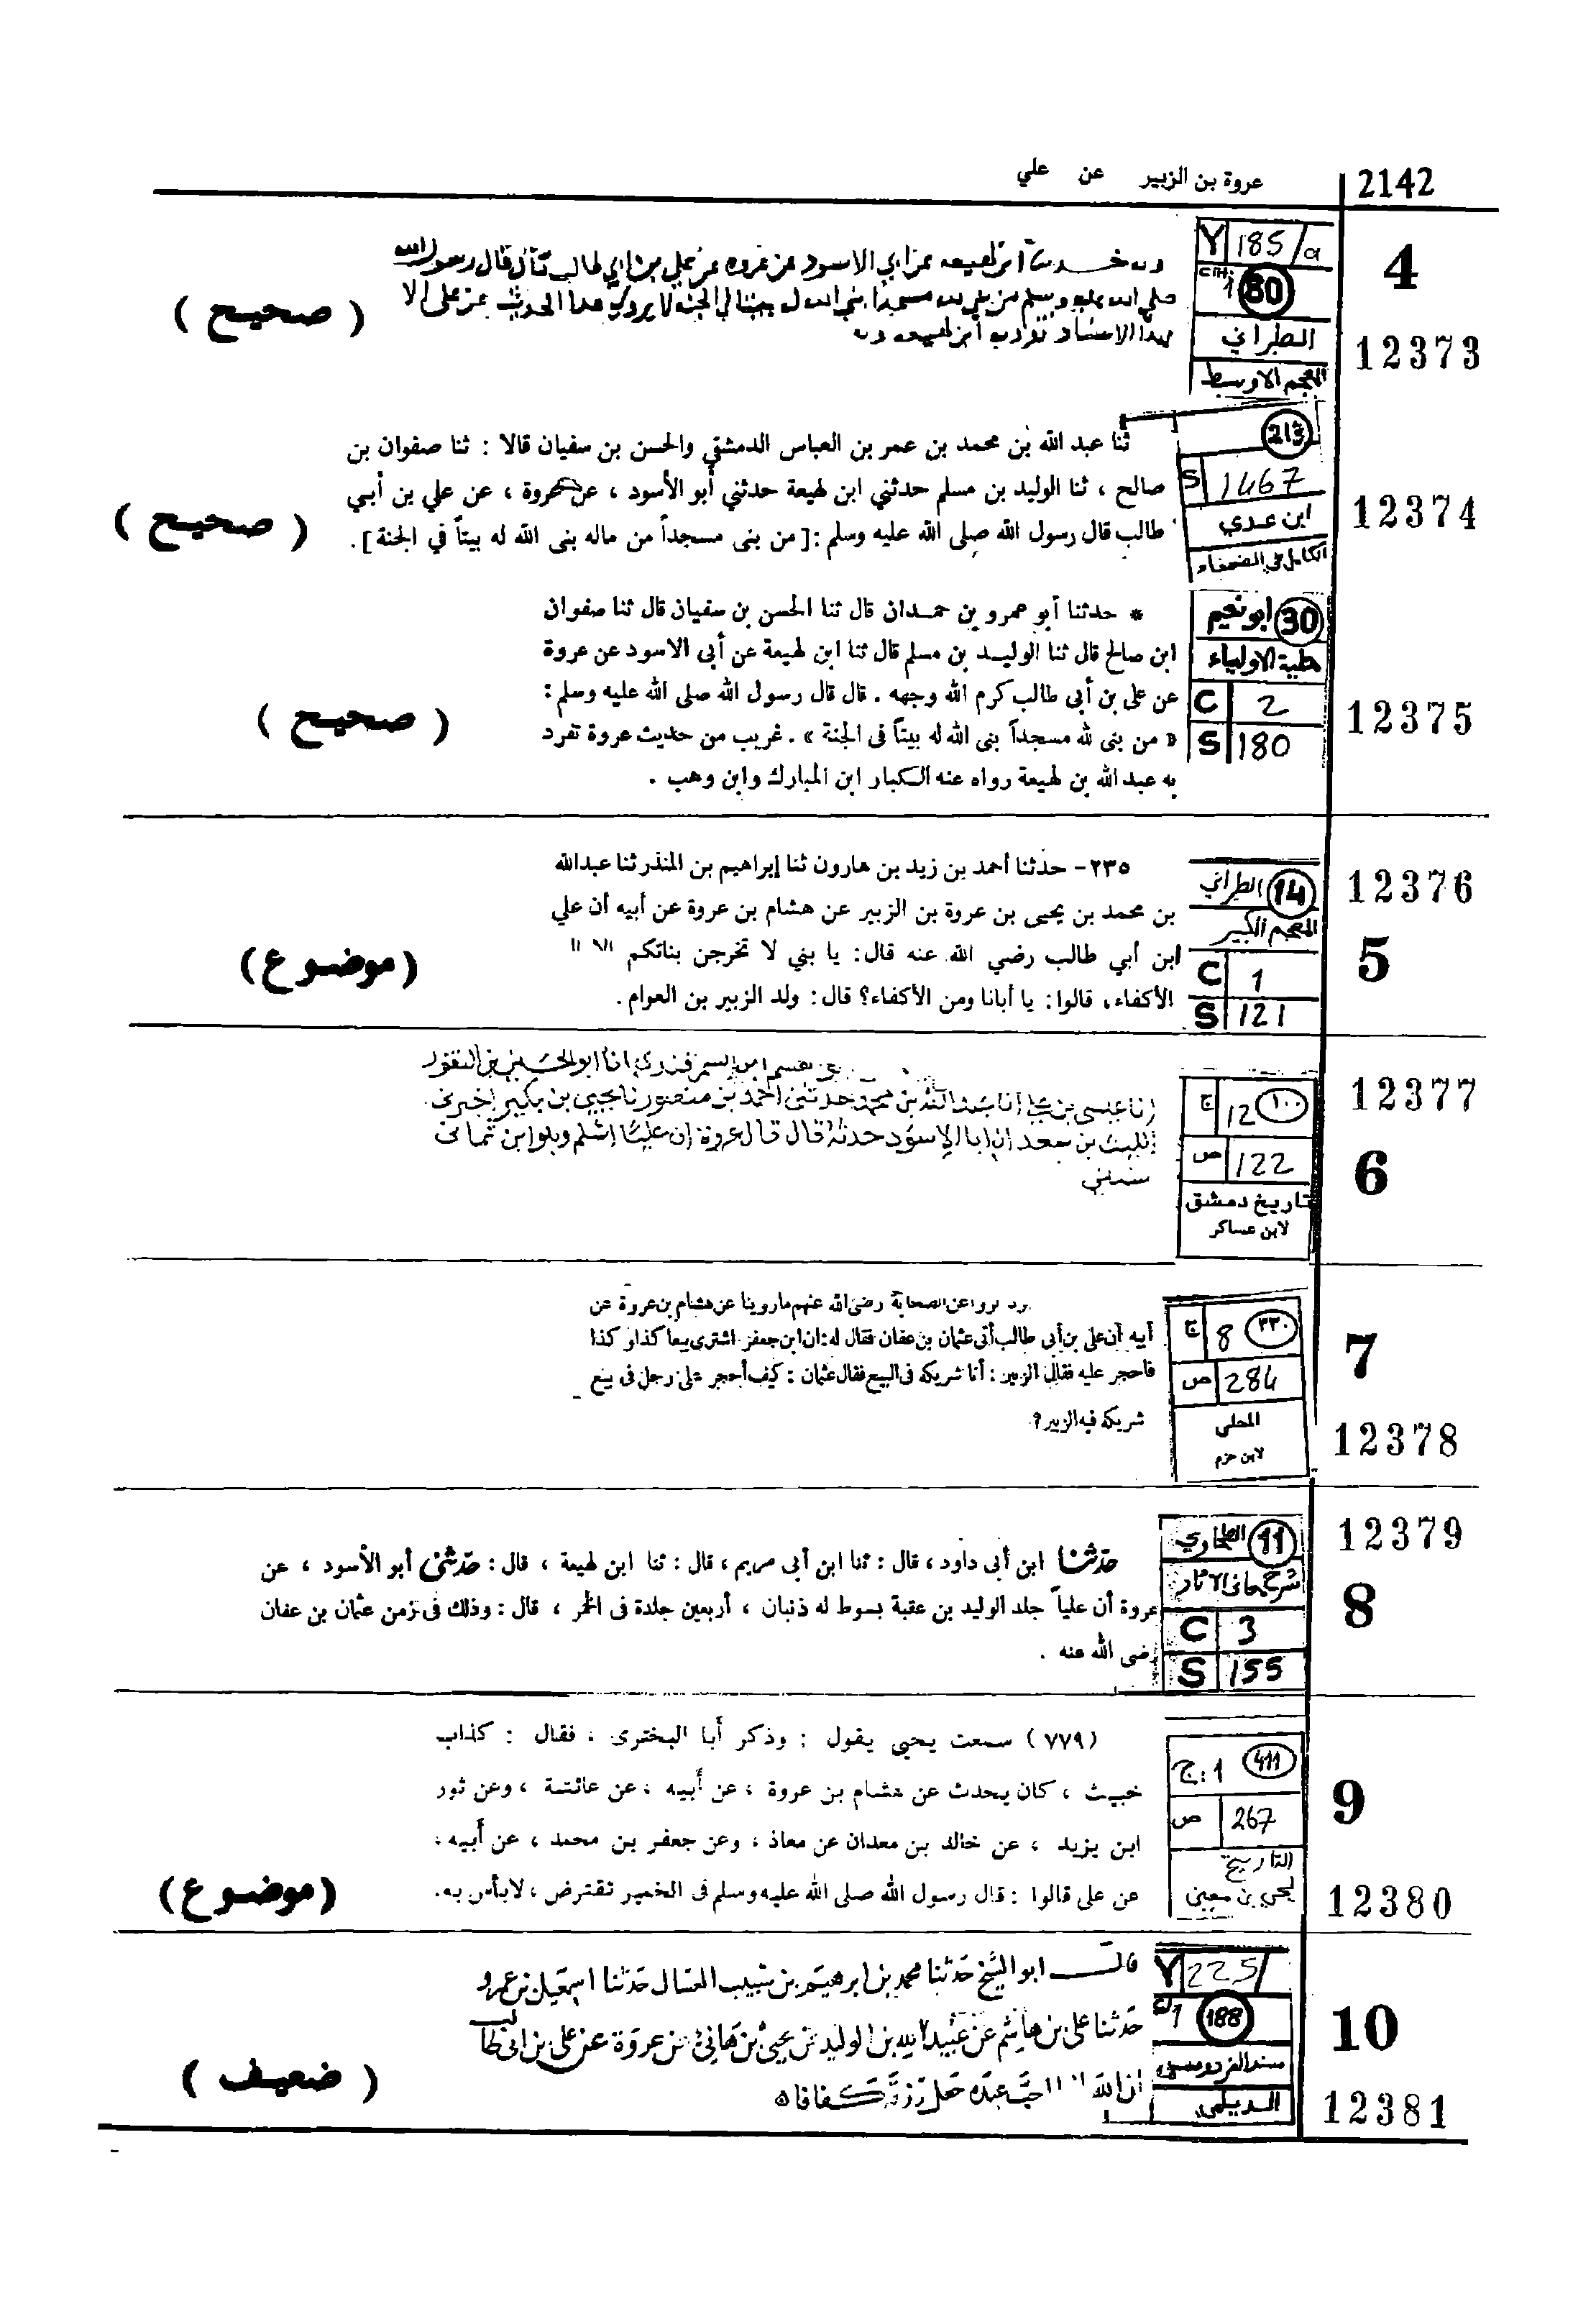 2142
عروة بن الزبير عن علي
4
12373
Y 185/a
80
الطبراني
المعجم الاوسط
وبه حدثنا ابن لهيعه عن ابي الاسود عن عروه عن علي بن ابي طالب قال قال رسول الله
صلى الله عليه وسلم من بنى لله مسجدا بنى الله له بيتا في الجنه لا يروى هذا الحديث عن علي الا
بهذا الاسناد تفرد به ابن لهيعه وبه
( صحيح )
12374
213
S 1467
ابن عدي
الكامل في الضعفاء
ثنا عبد الله بن محمد بن عمر بن العباس الدمشقي والحسن بن سفيان قالا : ثنا صفوان بن
صالح ، ثنا الوليد بن مسلم حدثني ابن لهيعة حدثني أبو الأسود ، عن عروة ، عن علي بن أبي
طالب قال رسول الله صلى الله عليه وسلم :[من بنى مسجداً من ماله بنى الله له بيتاً في الجنة].
( صحيح )
12375
30 ابو نعيم
حلية الاولياء
C 2
S 180
* حدثنا أبو عمرو بن حمدان قال ثنا الحسن بن سفيان قال ثنا صفوان
ابن صالح قال ثنا الوليد بن مسلم قال ثنا ابن لهيعة عن أبى الاسود عن عروة
عن على بن أبى طالب كرم الله وجهه . قال قال رسول الله صلى الله عليه وسلم :
« من بنى لله مسجداً بنى الله له بيتاً فى الجنة » . غريب من حديث عروة تفرد
به عبد الله بن لهيعة رواه عنه الكبار ابن المبارك وابن وهب .
( صحيح )
12376
5
14 الطبراني
المعجم الكبير
C 1
S 121
٢٣٥- حدثنا أحمد بن زيد بن هارون ثنا إبراهيم بن المنذر ثنا عبدالله
بن محمد بن يحيى بن عروة بن الزبير عن هشام بن عروة عن أبيه أن علي
ابن أبي طالب رضي الله عنه قال: يا بني لا تخرجن بناتكم إلا إلى
الأكفاء، قالوا: يا أبانا ومن الأكفاء؟ قال: ولد الزبير بن العوام.
(موضوع)
12377
6
١٠٠ 12 ج
122 ص
تاريخ دمشق
لابن عساكر
ابن السمرقندي انا ابو الحسين بن النقور
انا عيسى بن علي انا عبد الله بن محمد حدثني احمد بن منصور نا يحيى بن بكير اخبرني
الليث بن سعد ان ابا الاسود حدثه قال قال عروة ان عليا اسلم وهو ابن ثماني
سنين
7
12378
٣٣٠ 8 ج
284 ص
المحلى
لابن حزم
عن الصحابة رضى الله عنهم ما روينا عن هشام بن عروة عن
أبيه أن على بن أبى طالب أتى عثمان بن عفان فقال له: ان ابن جعفر اشترى بيعا كذا وكذا
فاحجر عليه فقال الزبير: أنا شريكه فى البيع فقال عثمان: كيف أحجر على رجل فى بيع
شريكه فيه الزبير؟
12379
8
11 الطحاوي
شرح معاني الاثار
C 3
S 155
حدثنا ابن أبى داود ، قال : ثنا ابن أبى مريم ، قال : ثنا ابن لهيعة ، قال : حدثنى أبو الأسود ، عن
عروة أن علياً جلد الوليد بن عقبة بسوط له ذنبان ، أربعين جلدة فى الخمر ، قال : وذلك فى زمن عثمان بن عفان
رضى الله عنه .
9
12380
411 1 : ج
267 ص
التاريخ
ليحيى بن معين
(٧٧٩) سمعت يحيى يقول : وذكر أبا البخترى ، فقال : كذاب
خبيث ، كان يحدث عن هشام بن عروة ، عن أبيه ، عن عائشة ، وعن ثور
ابن يزيد ، عن خالد بن معدان عن معاذ ، وعن جعفر بن محمد ، عن أبيه ،
عن على قالوا : قال رسول الله صلى الله عليه وسلم فى الخمير تقترض ، لا بأس به.
(موضوع)
10
12381
Y 225/
188
مسند الفردوس
الديلمي
قال ابو الشيخ حدثنا محمد بن ابرهيم بن شبيب العسال حدثنا اسمعيل بن عمرو
حدثنا علي بن هاشم عن عبيد الله بن الوليد عن يحيى بن هانئ عن عروة عن علي بن ابي طالب
ان الله اذا احب عبدا جعل رزقه كفافا
( ضعيف )